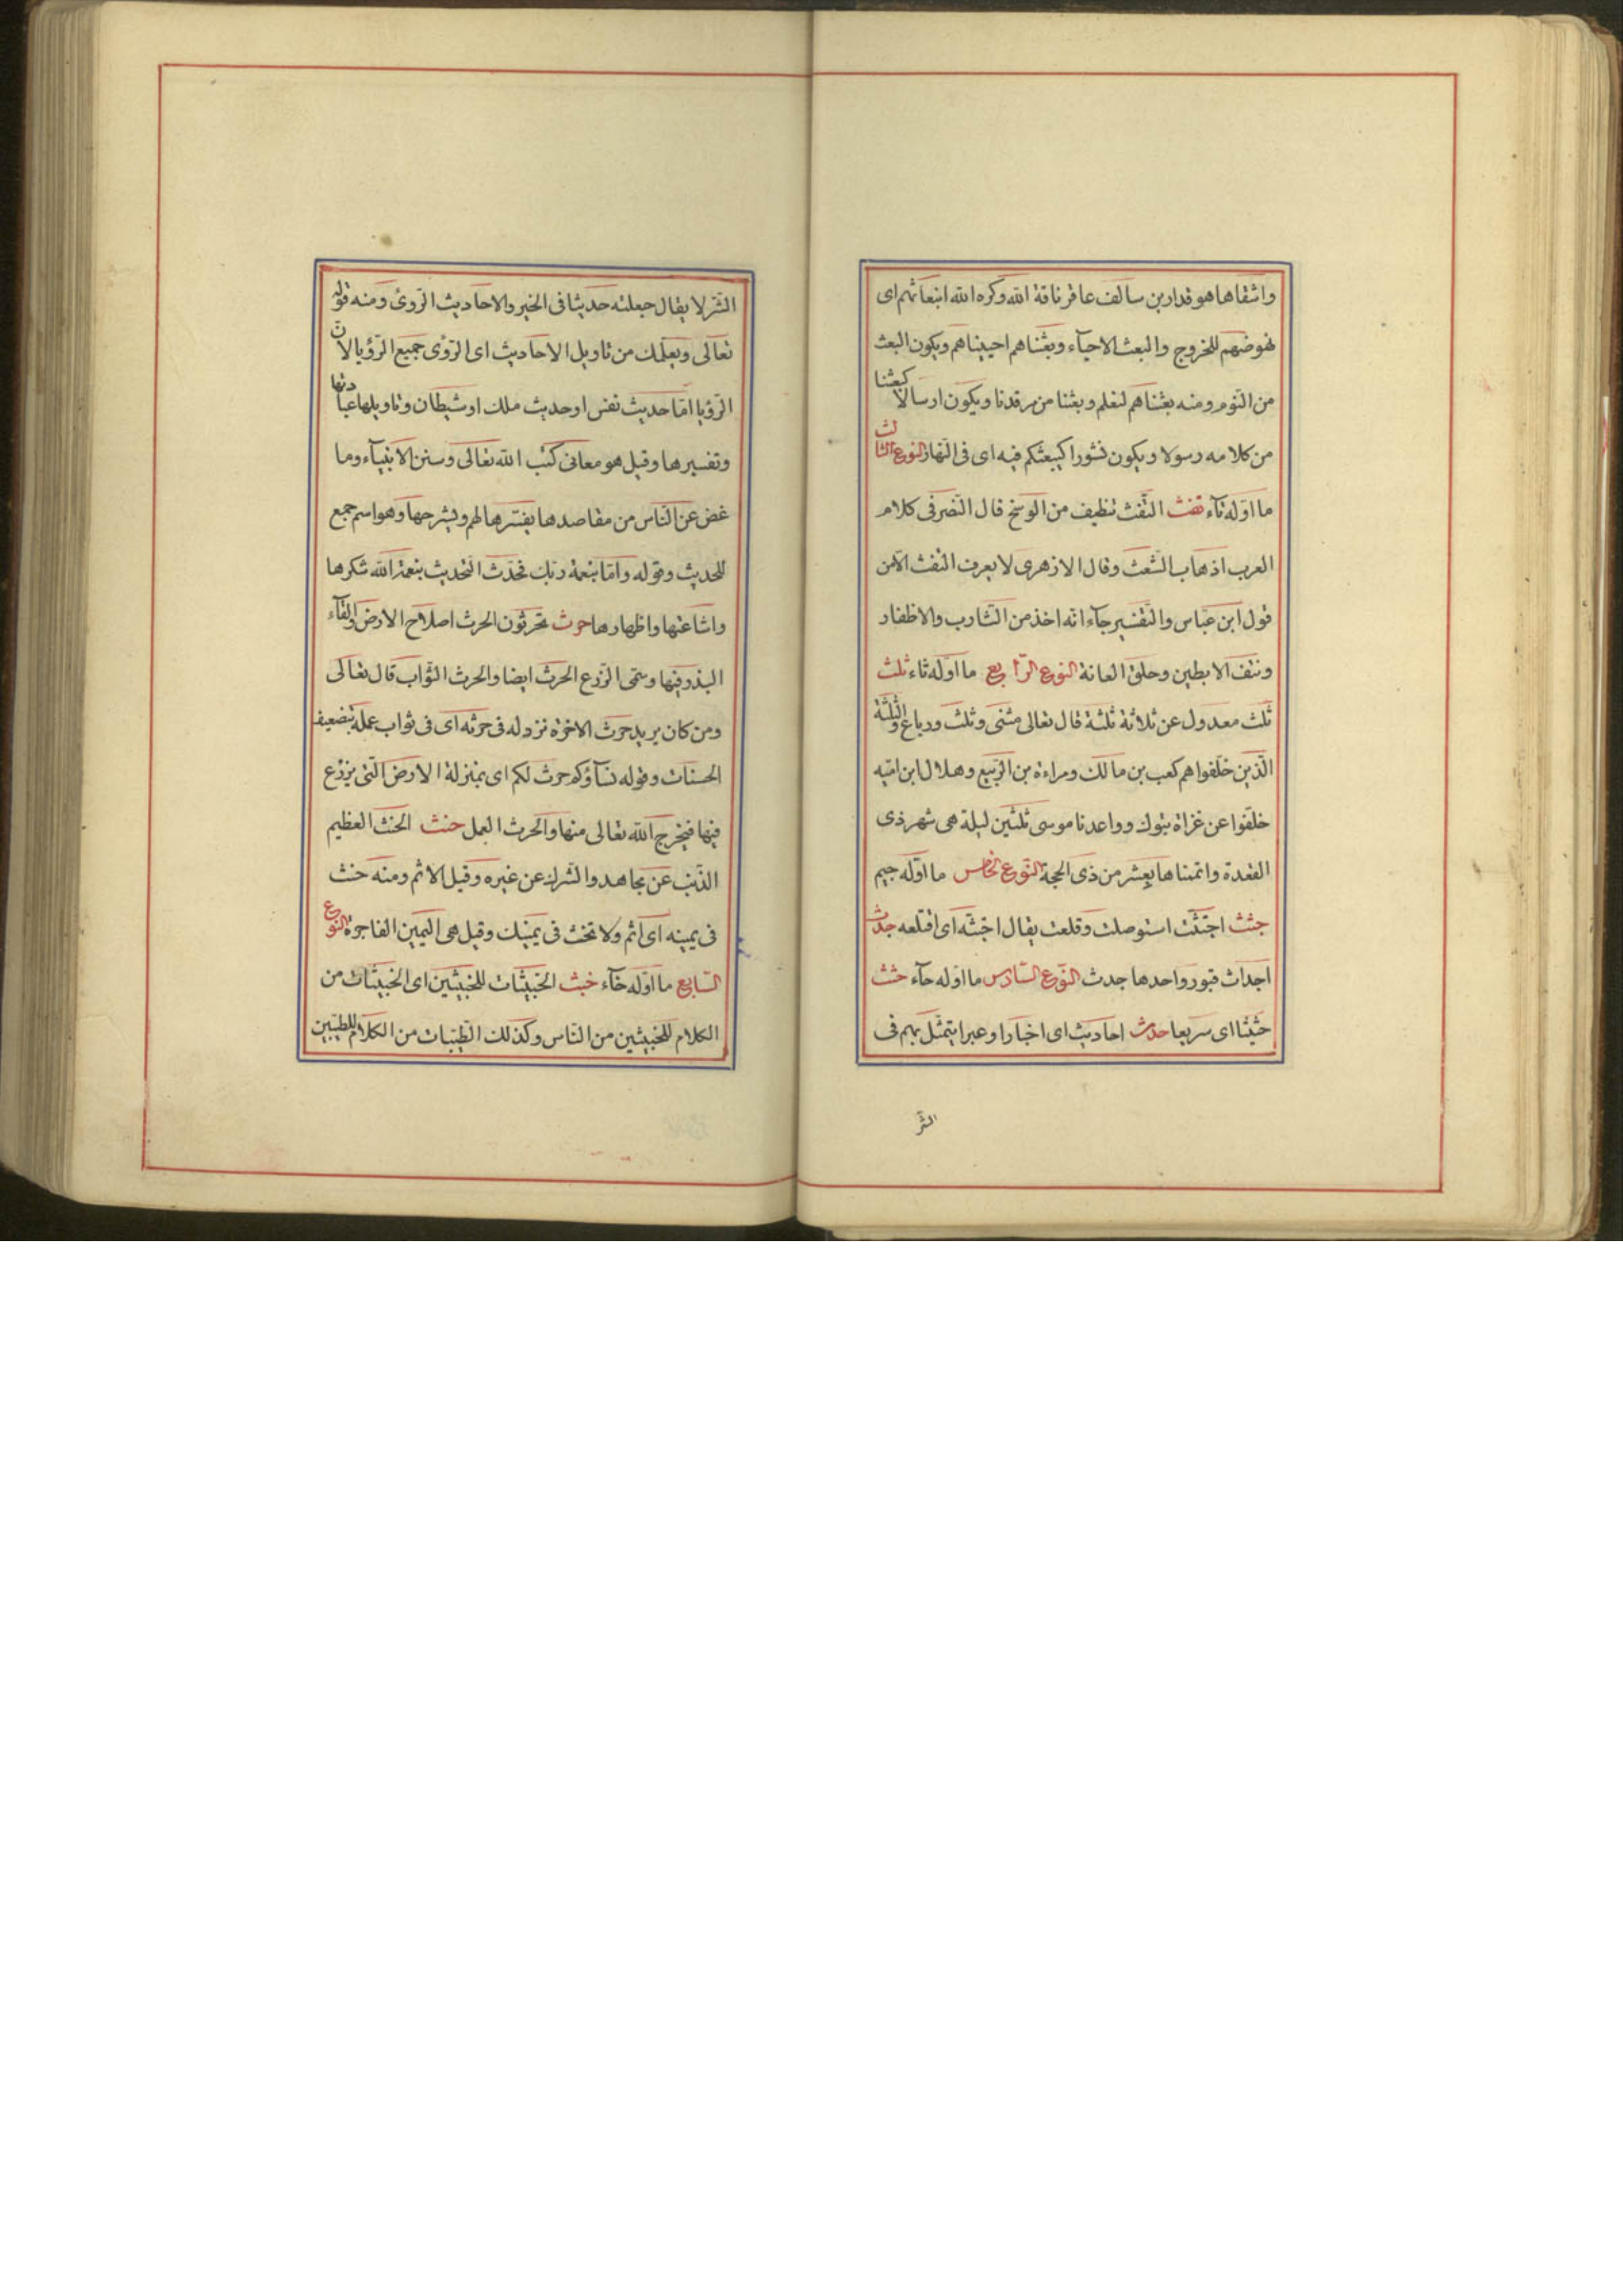 واشقاها هو قدار بن سالف عاقر ناقة الله وكره الله انبعاثهم اى
نهوضهم للخروج والبعث الاحيآء وبعثناهم احييناهم ويكون البعث
من النّوم ومنه بعثناهم لنعلم وبعثنا من مرقدنا ويكون ارسالا كبعثنا
من كلامه رسولا ويكون نشورا كيبعثكم فيه اى فى النّهار النوع الثالث
ما اوّله تآء تفث التّفث تنظيف من الوسخ قال النّضر فى كلام
العرب اذهاب الشّعث وقال الازهرى لا يعرف التفث الّا من
قول ابن عبّاس والتّفسير جآء انه اخذ من الشّارب والاظفار
ونتف الابطين وحلق العانة النوع الرّابع ما اوّله ثاء ثلث
ثلث معدول عن ثلاثة ثلثة قال تعالى مثنى وثلث ورباع والثلثة
الّذين خلّفوا هم كعب بن مالك ومراءة بن الرّبيع وهلال ابن اميّه
خلّفوا عن غزاة تبوك وواعدنا موسى ثلثين ليلة هى شهر ذى
القعدة واتممناها بعشر من ذى الحجة النّوع الخامس ما اوّله جيم
جثث اجتثّت استوصلت وقلعت يقال اجتثّه اى اقتلعه جدث
اجداث قبور واحدها جدث النّوع السّادس ما اوله حآء حثث
حثيثا اى سريعا حدث احاديث اى اخبارا وعبرا يتمثّل بهم فى
الشّر
الشّر لا يقال جعلته حديثا فى الخير والاحاديث الرّوىٔ ومنه قوله
تعالى ويعلّمك من تاويل الاحاديث اى الرّؤى جميع الرّؤيا لانّ
الرّؤيا امّا حديث نفس او حديث ملك او شيطان وتاويلها عبارتها
وتفسيرها وقيل هو معانى كتب الله تعالى وسنن الانبيآء وما
غض عن النّاس من مقاصدها يفسّرها لهم ويشرحها وهو اسم جمع
للحديث وقوله وامّا بنعمة ربّك فحدّث التّحديث بنعمة الله شكرها
واشاعتها واظهارها حرث تحرثون الحرث اصلاح الارض والقآء
البذر فيها وسمّى الزّرع الحرث ايضا والحرث الثّواب قال تعالى
ومن كان يريد حرث الاخرة نزد له فى حرثه اى فى ثواب عمله بتضعيف
الحسنات وقوله نسآؤكم حرث لكم اى بمنزلة الارض الّتى يزرع
فيها فيخرج الله تعالى منها والحرث العمل حنث الحنث العظيم
الذّنب عن مجاهد والشّرك عن غيره وقيل الاثم ومنه حنث
فى يمينه اى اثم ولا تحنث فى يمينك وقيل هى اليمين الفاجرة النوع
السّابع ما اوّله خآء خبث الخبيثات للخبيثين اى الخبيثات من
الكلام للخبيثين من النّاس وكذلك الطّيّبات من الكلام للطيّبين